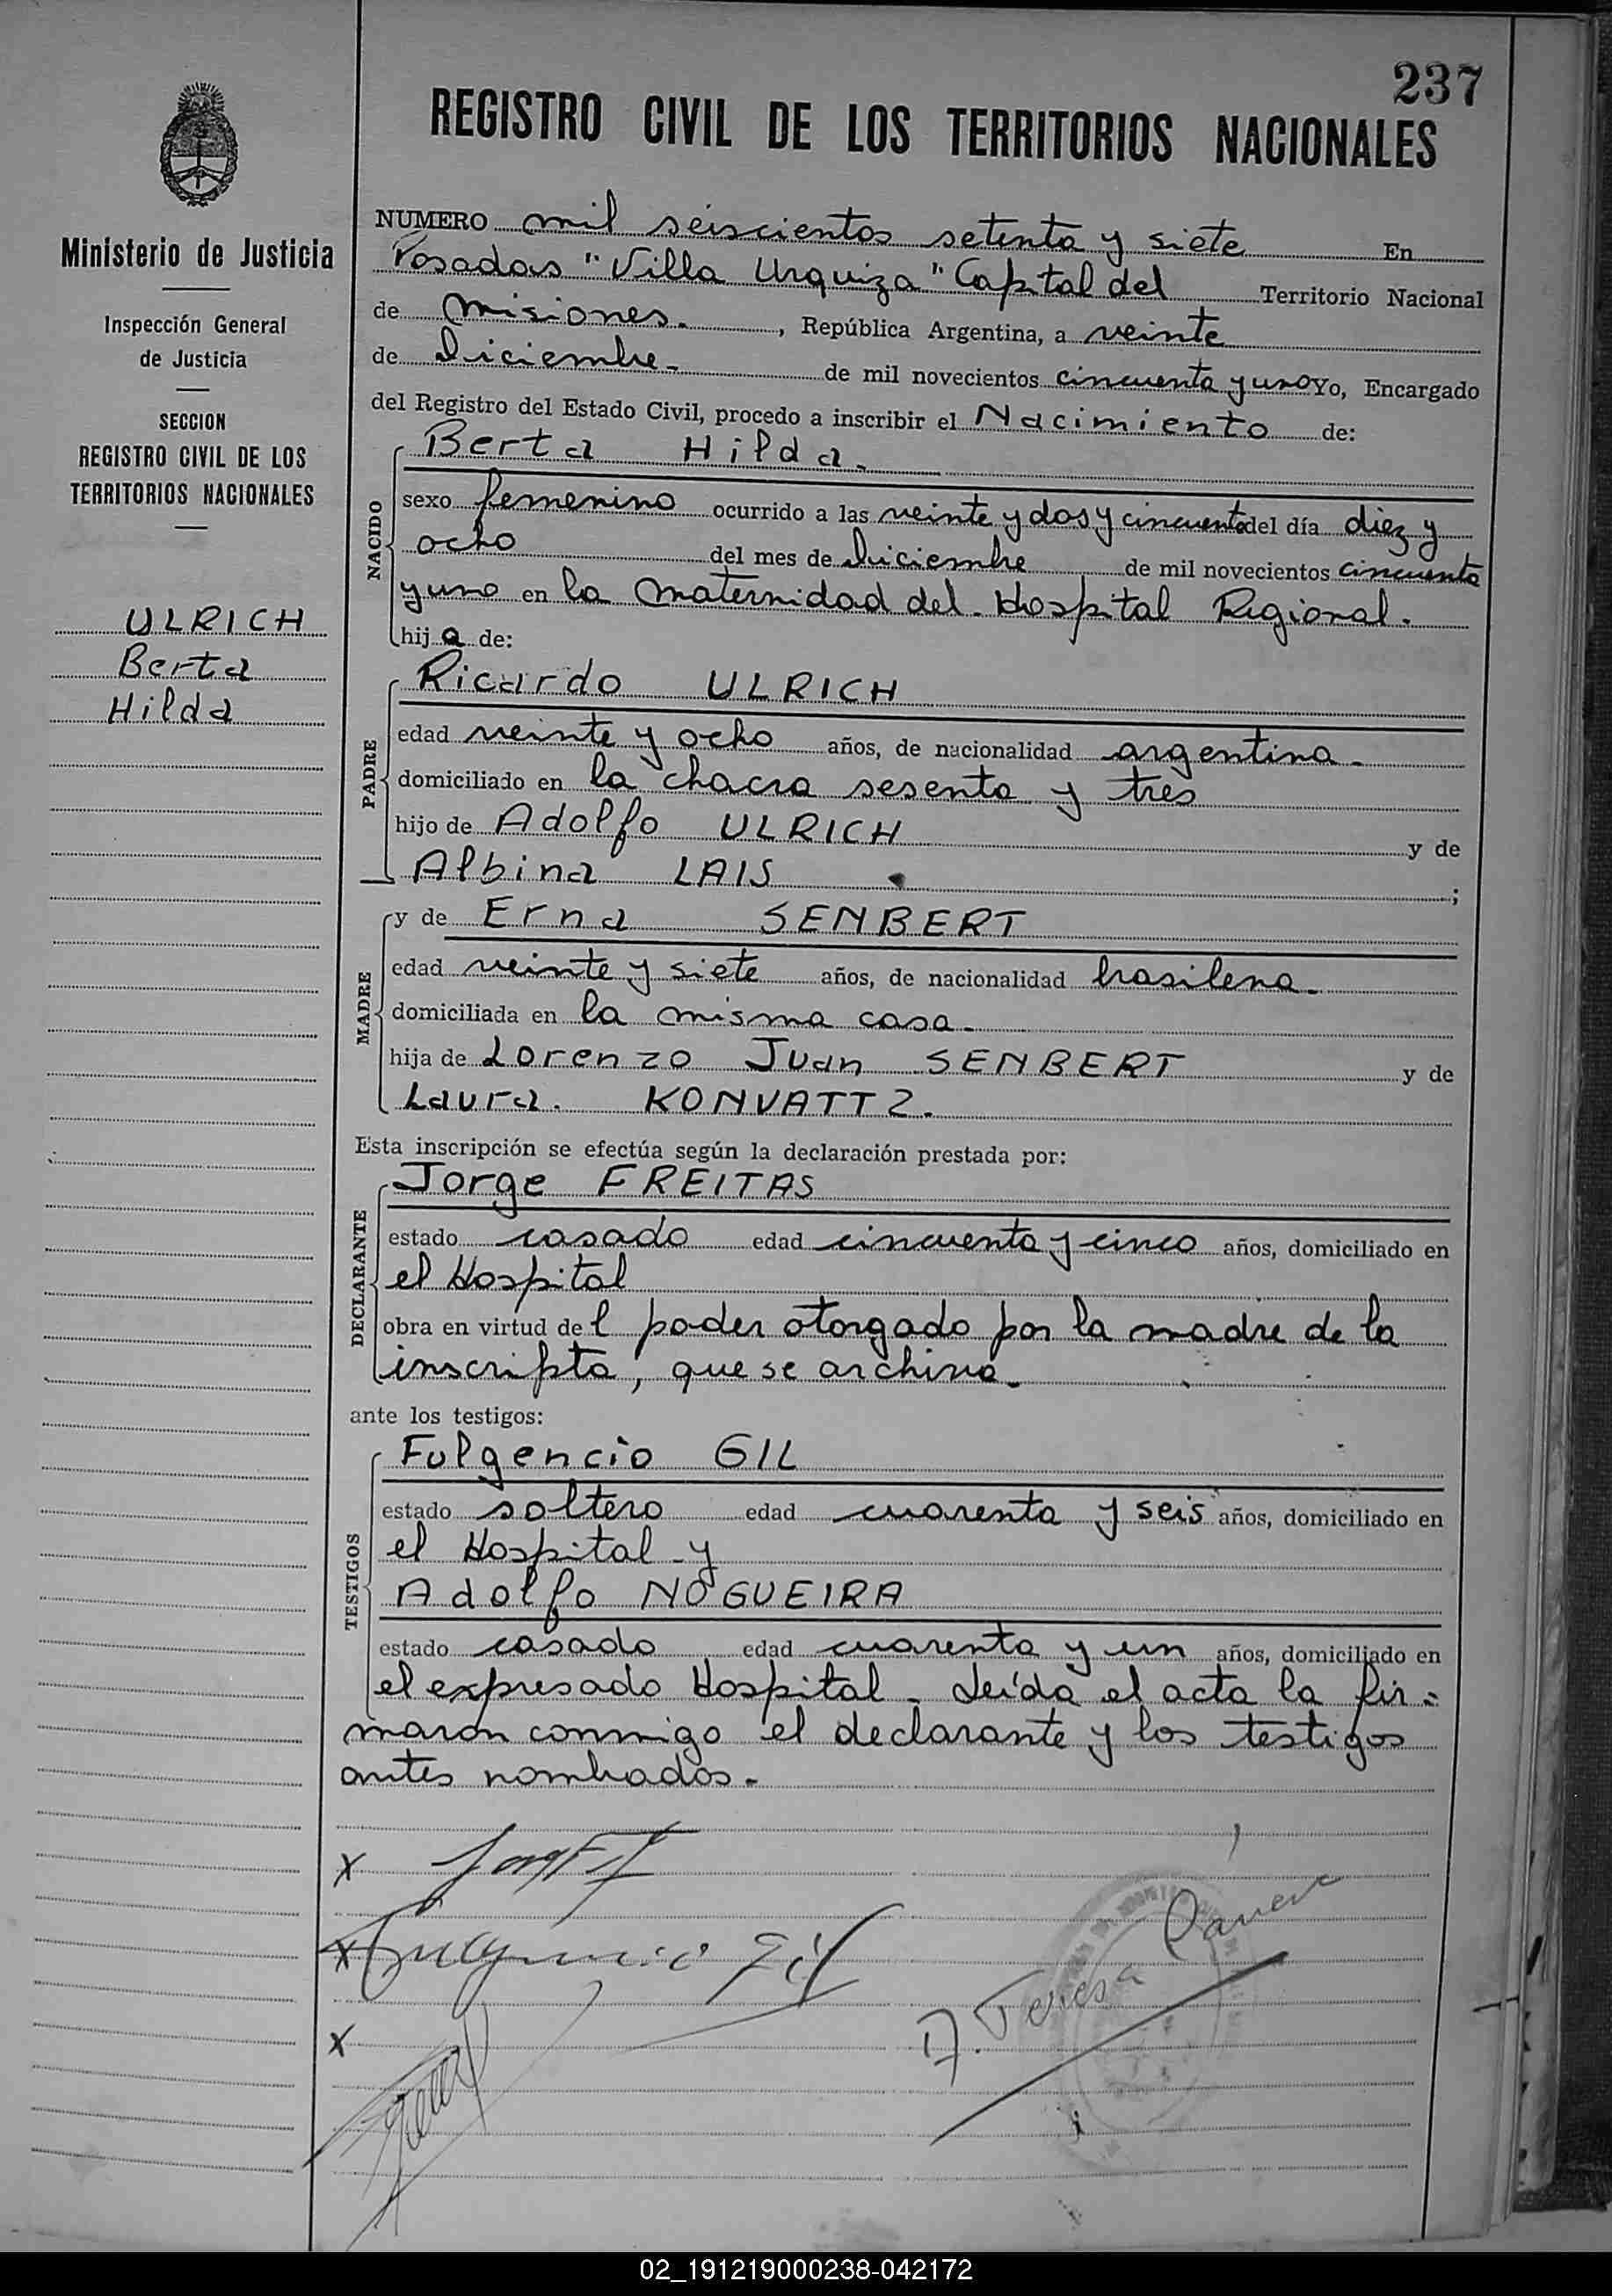 237
REGISTRO CIVIL DE LOS TERRITORIOS NACIONALES
Ministerio de Justicia
Inspección General
de Justicia
SECCION
REGISTRO CIVIL DE LOS
TERRITORIOS NACIONALES
ULRICH
Berta
Hilda
NUMERO mil seiscientos setenta y siete En
Posadas "Villa Urquiza" Capital del Territorio Nacional
de Misiones. , República Argentina, a veinte
de Diciembre. de mil novecientos cincuenta y uno Yo, Encargado
del Registro del Estado Civil, procedo a inscribir el Nacimiento de:
Berta Hilda.
NACIDO
sexo femenino ocurrido a las veinte y dos y cincuenta del día diez y
ocho del mes de Diciembre de mil novecientos cincuenta
y uno en la Maternidad del Hospital Regional.
hija de:
Ricardo ULRICH
PADRE
edad veinte y ocho años, de nacionalidad argentina.
domiciliado en la chacra sesenta y tres
hijo de Adolfo ULRICH y de
Albina LAIS ;
y de Erna SENBERT
MADRE
edad veinte y siete años, de nacionalidad brasilena.
domiciliada en la misma casa.
hija de Lorenzo Juan SENBERT y de
Laura. KONVATTZ.
Esta inscripción se efectúa según la declaración prestada por:
Jorge FREITAS
DECLARANTE
estado casado edad cincuenta y cinco años, domiciliado en
el Hospital
obra en virtud del poder otorgado por la madre de la
inscripta, que se archiva.
ante los testigos:
Fulgencio GIL
TESTIGOS
estado soltero edad cuarenta y seis años, domiciliado en
el Hospital y
Adolfo NOGUEIRA
estado casado edad cuarenta y un años, domiciliado en
el expresado Hospital. Leída el acta la fir=
maron conmigo el declarante y los testigos
antes nombrados.
x
x Fulgencio Gil
x
A. Teresa
02_191219000238-042172